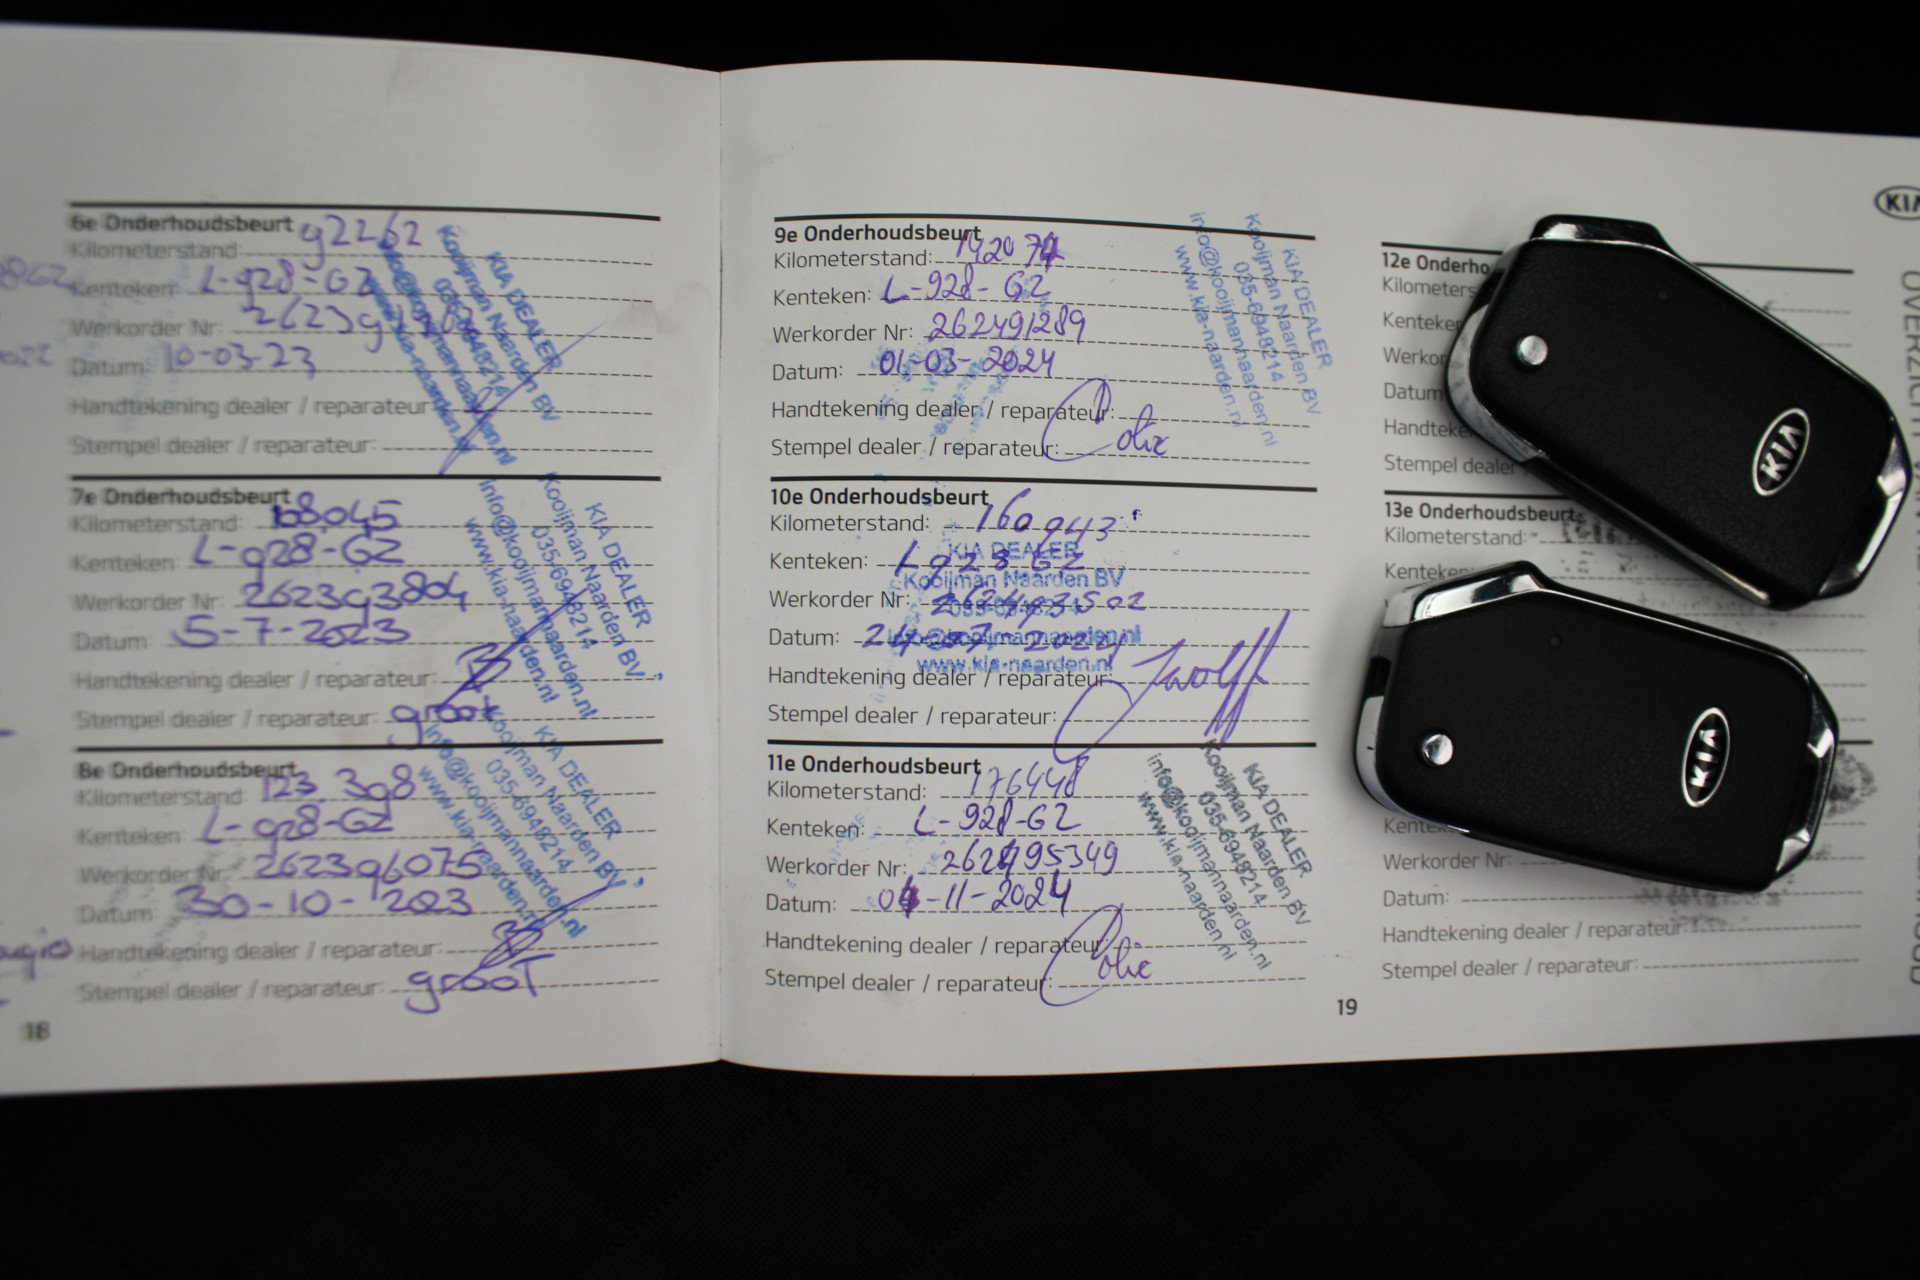 6e Onderhoudsbeurt
Kilometerstand: 92262
Kenteken: L-928-GZ
Werkorder Nr:
Datum: 10-03-23
Handtekening dealer / reparateur:
Stempel dealer / reparateur:
KIA DEALER
Kooijman Naarden BV
035-6948214
info@kooijmannaarden.nl
www.kia-naarden.nl
7e Onderhoudsbeurt
Kilometerstand: 108045
Kenteken: L-928-GZ
Werkorder Nr: 262393804
Datum: 5-7-2023
Handtekening dealer / reparateur:
Stempel dealer / reparateur: groot
KIA DEALER
Kooijman Naarden BV
035-6948214
info@kooijmannaarden.nl
www.kia-naarden.nl
8e Onderhoudsbeurt
Kilometerstand: 123.398
Kenteken: L-928-GZ
Werkorder Nr: 262396075
Datum: 30-10-203
Handtekening dealer / reparateur:
Stempel dealer / reparateur: grooT
KIA DEALER
Kooijman Naarden BV
035-6948214
info@kooijmannaarden.nl
www.kia-naarden.nl
18
9e Onderhoudsbeurt
Kilometerstand:
Kenteken: L-928-GZ
Werkorder Nr: 262491289
Datum: 01-03-2024
Handtekening dealer / reparateur:
Stempel dealer / reparateur:
KIA DEALER
Kooijman Naarden BV
035-6948214
info@kooijmannaarden.nl
www.kia-naarden.nl
10e Onderhoudsbeurt
Kilometerstand: 160943
Kenteken: L 928 GZ
Werkorder Nr: 262493502
Datum: 24-07-2024
Handtekening dealer / reparateur:
Stempel dealer / reparateur:
KIA DEALER
Kooijman Naarden BV
035-6948214
info@kooijmannaarden.nl
www.kia-naarden.nl
11e Onderhoudsbeurt
Kilometerstand: 176448
Kenteken: L-928-GZ
Werkorder Nr: 262495349
Datum: 04-11-2024
Handtekening dealer / reparateur:
Stempel dealer / reparateur:
KIA DEALER
Kooijman Naarden BV
035-6948214
info@kooijmannaarden.nl
www.kia-naarden.nl
19
12e Onderho
Kilometers
Kenteken
Werkor
Datum
Handteke
Stempel dealer
13e Onderhoudsbeurt
Kilometerstand:
Kenteken
Kenteke
Werkorder Nr:
Datum:
Handtekening dealer / reparateur:
Stempel dealer / reparateur:
KIA
KIA
KIA
OVERZICHT